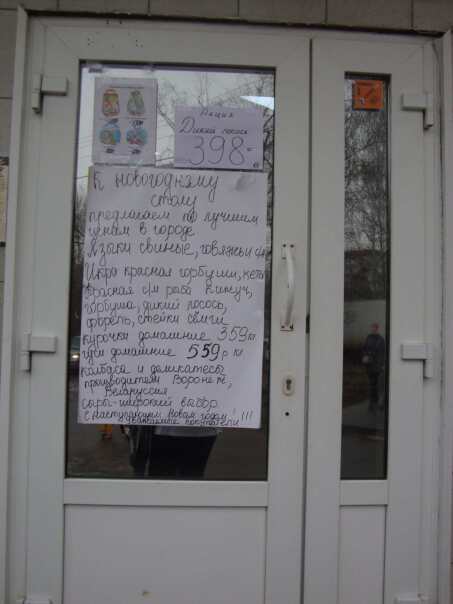 Акция
Дикий лосось
398=
К новогоднему
столу
предлагаем по лучшим
ценам в городе
Языки свиные, говяжьи
Икра красная горбуши, кеты
Красная с/м рыба Кижуч,
горбуша, дикий лосось,
форель, стейки семги
курочки домашние 359 кг
гуси домашние 559 р кг
колбаса и деликатесы
производители Воронеж,
Белоруссия
сыры-широкий выбор
С наступающим Новым годом!!!!
уважаемые покупатели